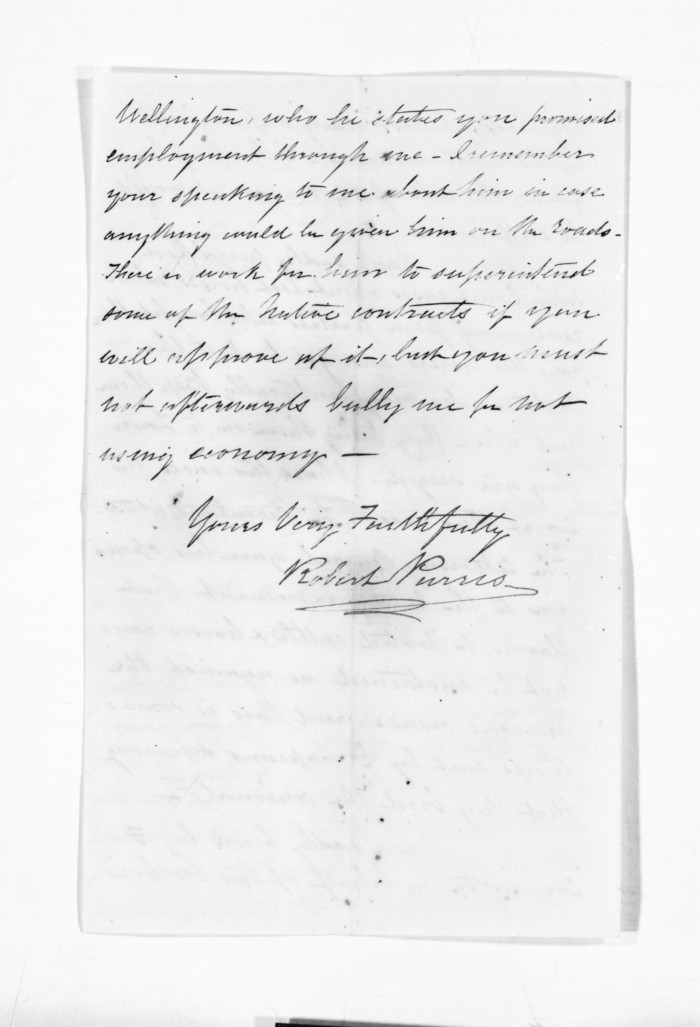 Wellington, who he states you promised
employment through me - I remember
your speaking to me about him in case
anything could be given him on the roads -
There is work for him to superintend
some of the Native contracts if you
will approve of it, but you must
not afterwards bully me for not
using economy -
Yours Very Faithfully
Robert